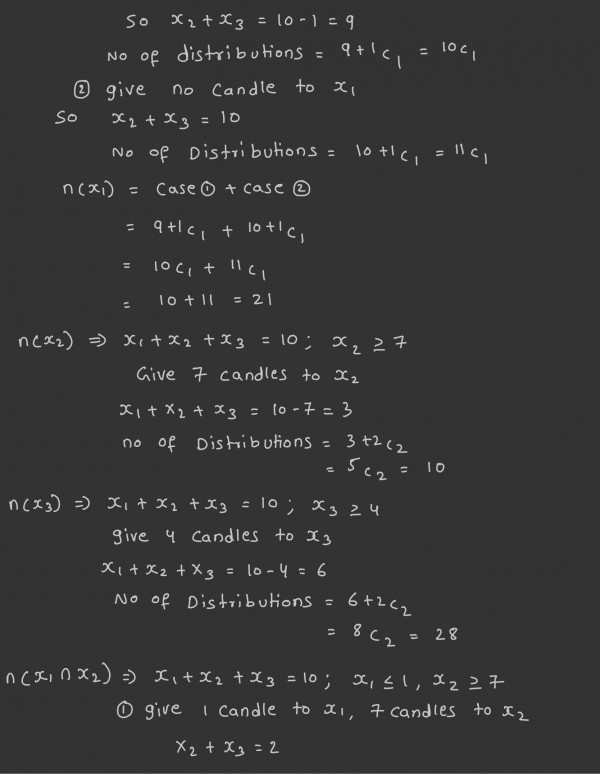 So x₂ + x₃ = 10 - 1 = 9
No of distributions = 9+1C₁ = 10C₁
② give no candle to x₁
So x₂ + x₃ = 10
No of Distributions = 10+1C₁ = 11C₁
n(x₁) = Case① + case ②
= 9+1C₁ + 10+1C₁
= 10C₁ + 11C₁
= 10 + 11 = 21
n(x₂) ⇒ x₁ + x₂ + x₃ = 10; x₂ ≥ 7
Give 7 candles to x₂
x₁ + x₂ + x₃ = 10 - 7 = 3
no of Distributions = 3+2C₂
= 5C₂ = 10
n(x₃) ⇒ x₁ + x₂ + x₃ = 10; x₃ ≥ 4
give 4 candles to x₃
x₁ + x₂ + x₃ = 10 - 4 = 6
No of Distributions = 6+2C₂
= 8C₂ = 28
n(x₁ ∩ x₂) ⇒ x₁ + x₂ + x₃ = 10; x₁ ≤ 1, x₂ ≥ 7
① give 1 candle to x₁, 7 candles to x₂
x₂ + x₃ = 2